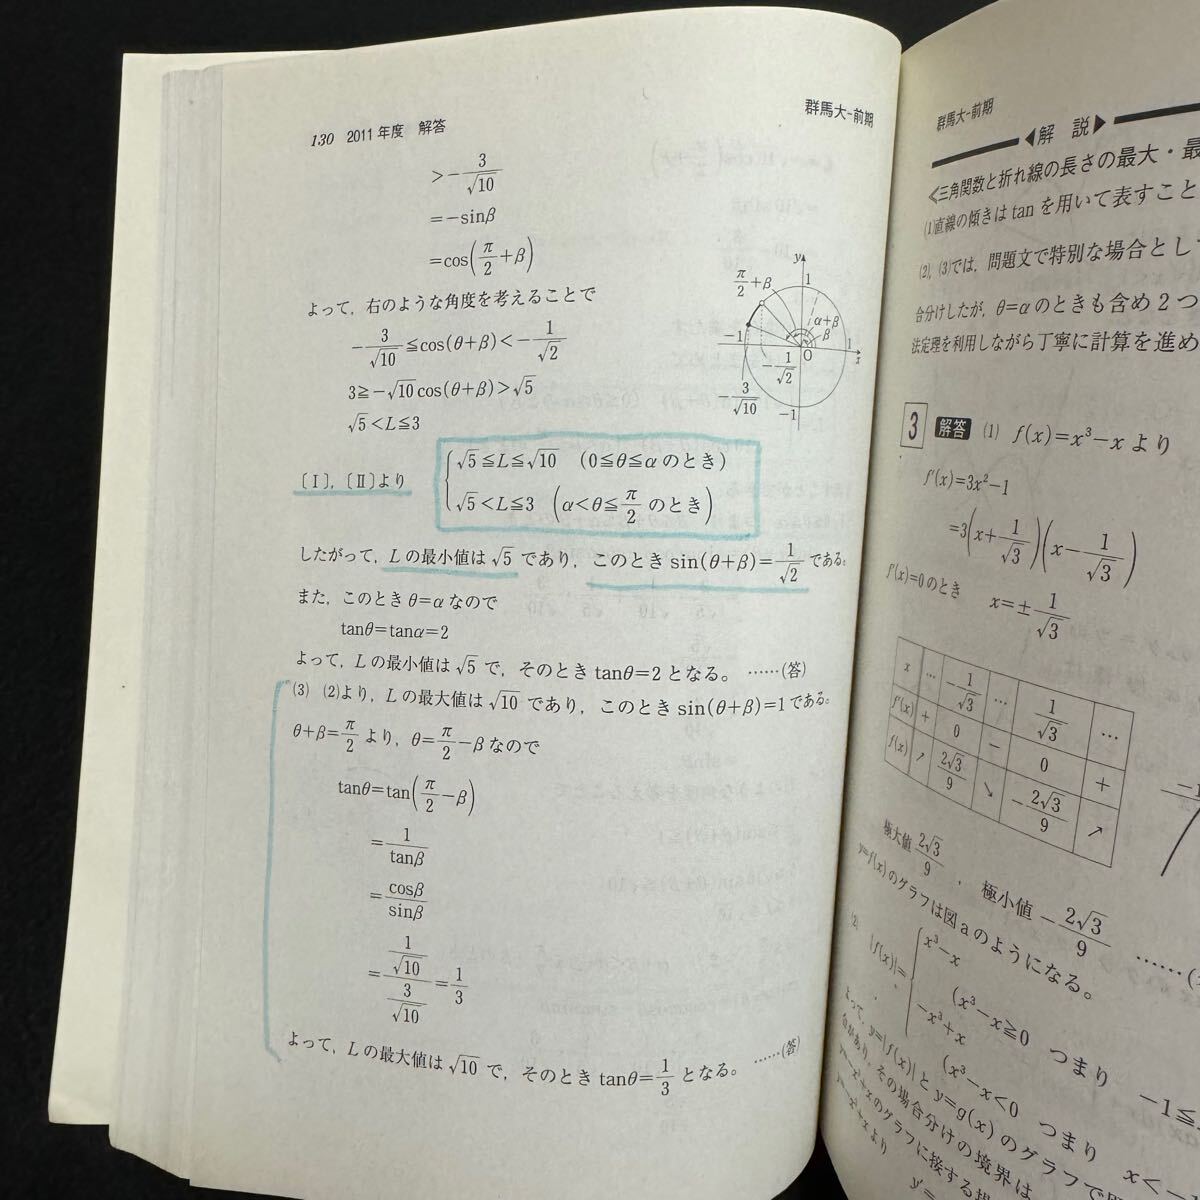 130 2011年度 解答
群馬大-前期
>-3/√10
=-sinβ
=cos(π/2+β)
よって，右のような角度を考えることで
-3/√10≦cos(θ+β)<-1/√2
3≧-√10cos(θ+β)>√5
√5<L≦3
y
π/2+β
1
α+β
β
-1
O
1
x
-1/√2
-3/√10
-1
〔Ⅰ〕，〔Ⅱ〕より
√5≦L≦√10 (0≦θ≦αのとき)
√5<L≦3 (α<θ≦π/2のとき)
したがって，Lの最小値は√5であり，このときsin(θ+β)=1/√2である。
また，このときθ=αなので
tanθ=tanα=2
よって，Lの最小値は√5で，そのときtanθ=2となる。 ……(答)
(3) (2)より，Lの最大値は√10であり，このときsin(θ+β)=1である。
θ+β=π/2より，θ=π/2-βなので
tanθ=tan(π/2-β)
=1/tanβ
=cosβ/sinβ
=(1/√10)/(3/√10)=1/3
よって，Lの最大値は√10で，そのときtanθ=1/3となる。 ……(答)
群馬大-前期
◀解 説▶
≪三角関数と折れ線の長さの最大・最
(1)直線の傾きはtanを用いて表すこと
(2)，(3)では，問題文で特別な場合とし
合分けしたが，θ=αのときも含め2つ
法定理を利用しながら丁寧に計算を進め
3 解答 (1) f(x)=x³-xより
f′(x)=3x²-1
=3(x+1/√3)(x-1/√3)
f′(x)=0のとき x=±1/√3
x … -1/√3 … 1/√3 …
f′(x) + 0 - 0 +
f(x) ↗ 2√3/9 ↘ -2√3/9 ↗
極大値2√3/9，極小値-2√3/9 ……(
y=f(x)のグラフは図aのようになる。
-1
(2) |f(x)|= x³-x (x³-x≧0 つまり -1≦
-x³+x (x³-x<0 つまり x<-
よって，y=|f(x)|とy=g(x)のグラフで
合があり，その場合分けの境界は
y=-x³+xのグラフに接する場
y=-x³+xより
y′=